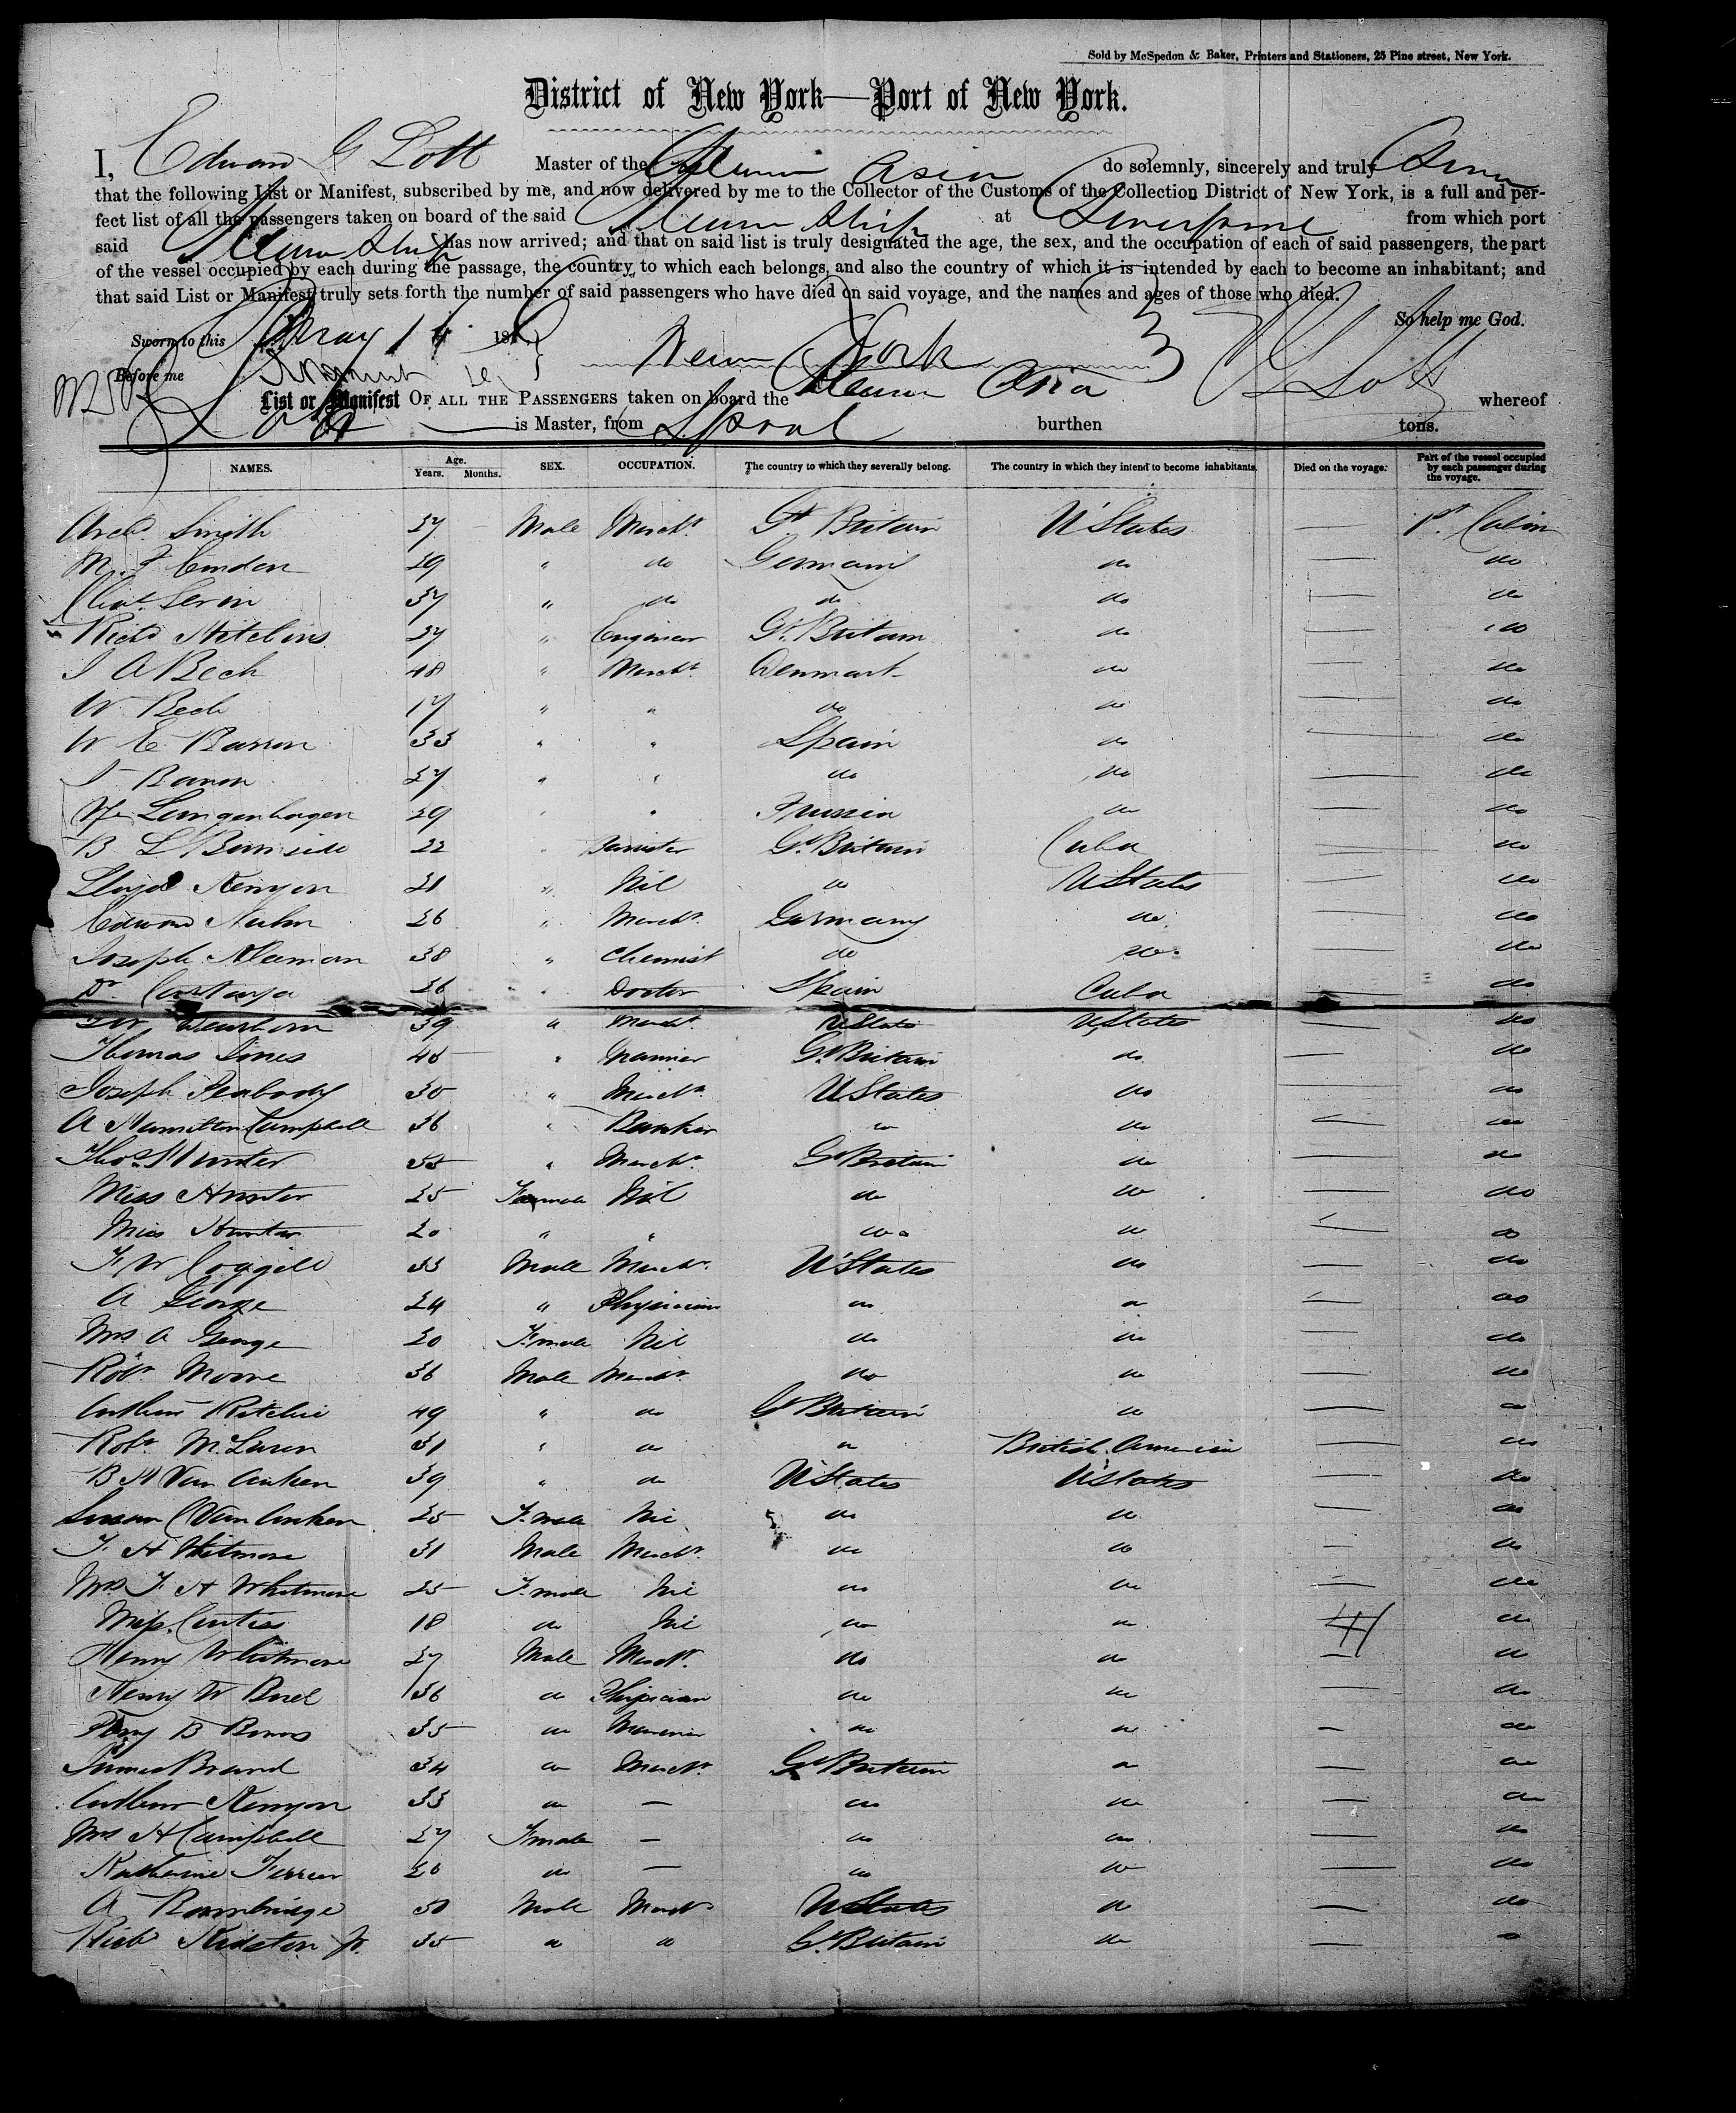 Sold by McSpedon & Baker, Printers and Stationers, 25 Pine street, New York.
District of New York—Port of New York.
I, Edward G Lott Master of the Steamer Asia do solemnly, sincerely and truly Swear
that the following List or Manifest, subscribed by me, and now delivered by me to the Collector of the Customs of the Collection District of New York, is a full and per-
fect list of all the passengers taken on board of the said Steam Ship at Liverpool from which port
said Steam Ship has now arrived; and that on said list is truly designated the age, the sex, and the occupation of each of said passengers, the part
of the vessel occupied by each during the passage, the country to which each belongs, and also the country of which it is intended by each to become an inhabitant; and
that said List or Manifest truly sets forth the number of said passengers who have died on said voyage, and the names and ages of those who died.
So help me God.
Sworn to this May 14 18
Before me New York E G Lott
List or Manifest OF ALL THE PASSENGERS taken on board the Steamer Asia whereof
Lott is Master, from Lpool burthen tons.
NAMES. Age. Years. Months. SEX. OCCUPATION. The country to which they severally belong. The country in which they intend to become inhabitants. Died on the voyage. Part of the vessel occupied by each passenger during the voyage.
Archd. Smith 37 Male Mercht. Gt Britain U States — 1st Cabin
M. F Emden 29 " do Germany do — do
Chas. 37 " do do do — do
Richd 27 " Engineer Gt. Britain do — do
J A Bech 48 " Mercht. Denmark do — do
W. Bech 17 " " do do — do
W E Barron 33 " " Spain do — do
J Barron 27 " " do do — do
Langenhagen 29 " " Prussia do — do
B L Burnside 22 " Barrister Gt. Britain Cuba — do
Lloyd Kenyon 21 " Nil do U States — do
Edward Kuhn 26 " Mercht. Germany do — do
Joseph Aleman 38 " Chemist do do — do
Dr. 26 " Doctor Spain Cuba — do
Dearborn 39 " Mercht. U States U States — do
Thomas Jones 45 " Mariner Gt Britain do — do
Joseph Peabody 30 " Mercht. U States do — do
A Hamilton Campbell 36 " Banker do do — do
Thos. Hunter 55 " Mercht. Gt Britain do — do
Miss Hunter 25 Female Nil do do — do
Miss Hunter 20 " " do do — do
F W Coggill 33 Male Mercht. U States do — do
A George 24 " Physician do do — do
Mrs A George 20 Female Nil do do — do
Robt Moore 36 Male Mercht. do do — do
Arthur Ritchie 49 " do Gt Britain do — do
Robt. McLaren 31 " do do British America — do
B H Van Auken 39 " do U States U States — do
Susan C Van Auken 25 Female Nil do do — do
F. H Whitmore 31 Male Mercht. do do — do
Mrs F H Whitmore 25 Female Nil do do — do
Miss Curtiss 18 do Nil do do — do
Henry Whitmore 27 Male Mercht. do do — do
Henry W Buel 36 do Physician do do — do
B Burns 35 do Mariner do do — do
James Brand 34 do Mercht. Gt Britain do — do
Arthur Kenyon 33 do — do do — do
Mrs H Campbell 27 Female — do do — do
Katherine Ferrier 20 do — do do — do
A Bambridge 30 Male Mercht U States do — do
Richd Kidston Jr. 35 do do Gt. Britain do — do